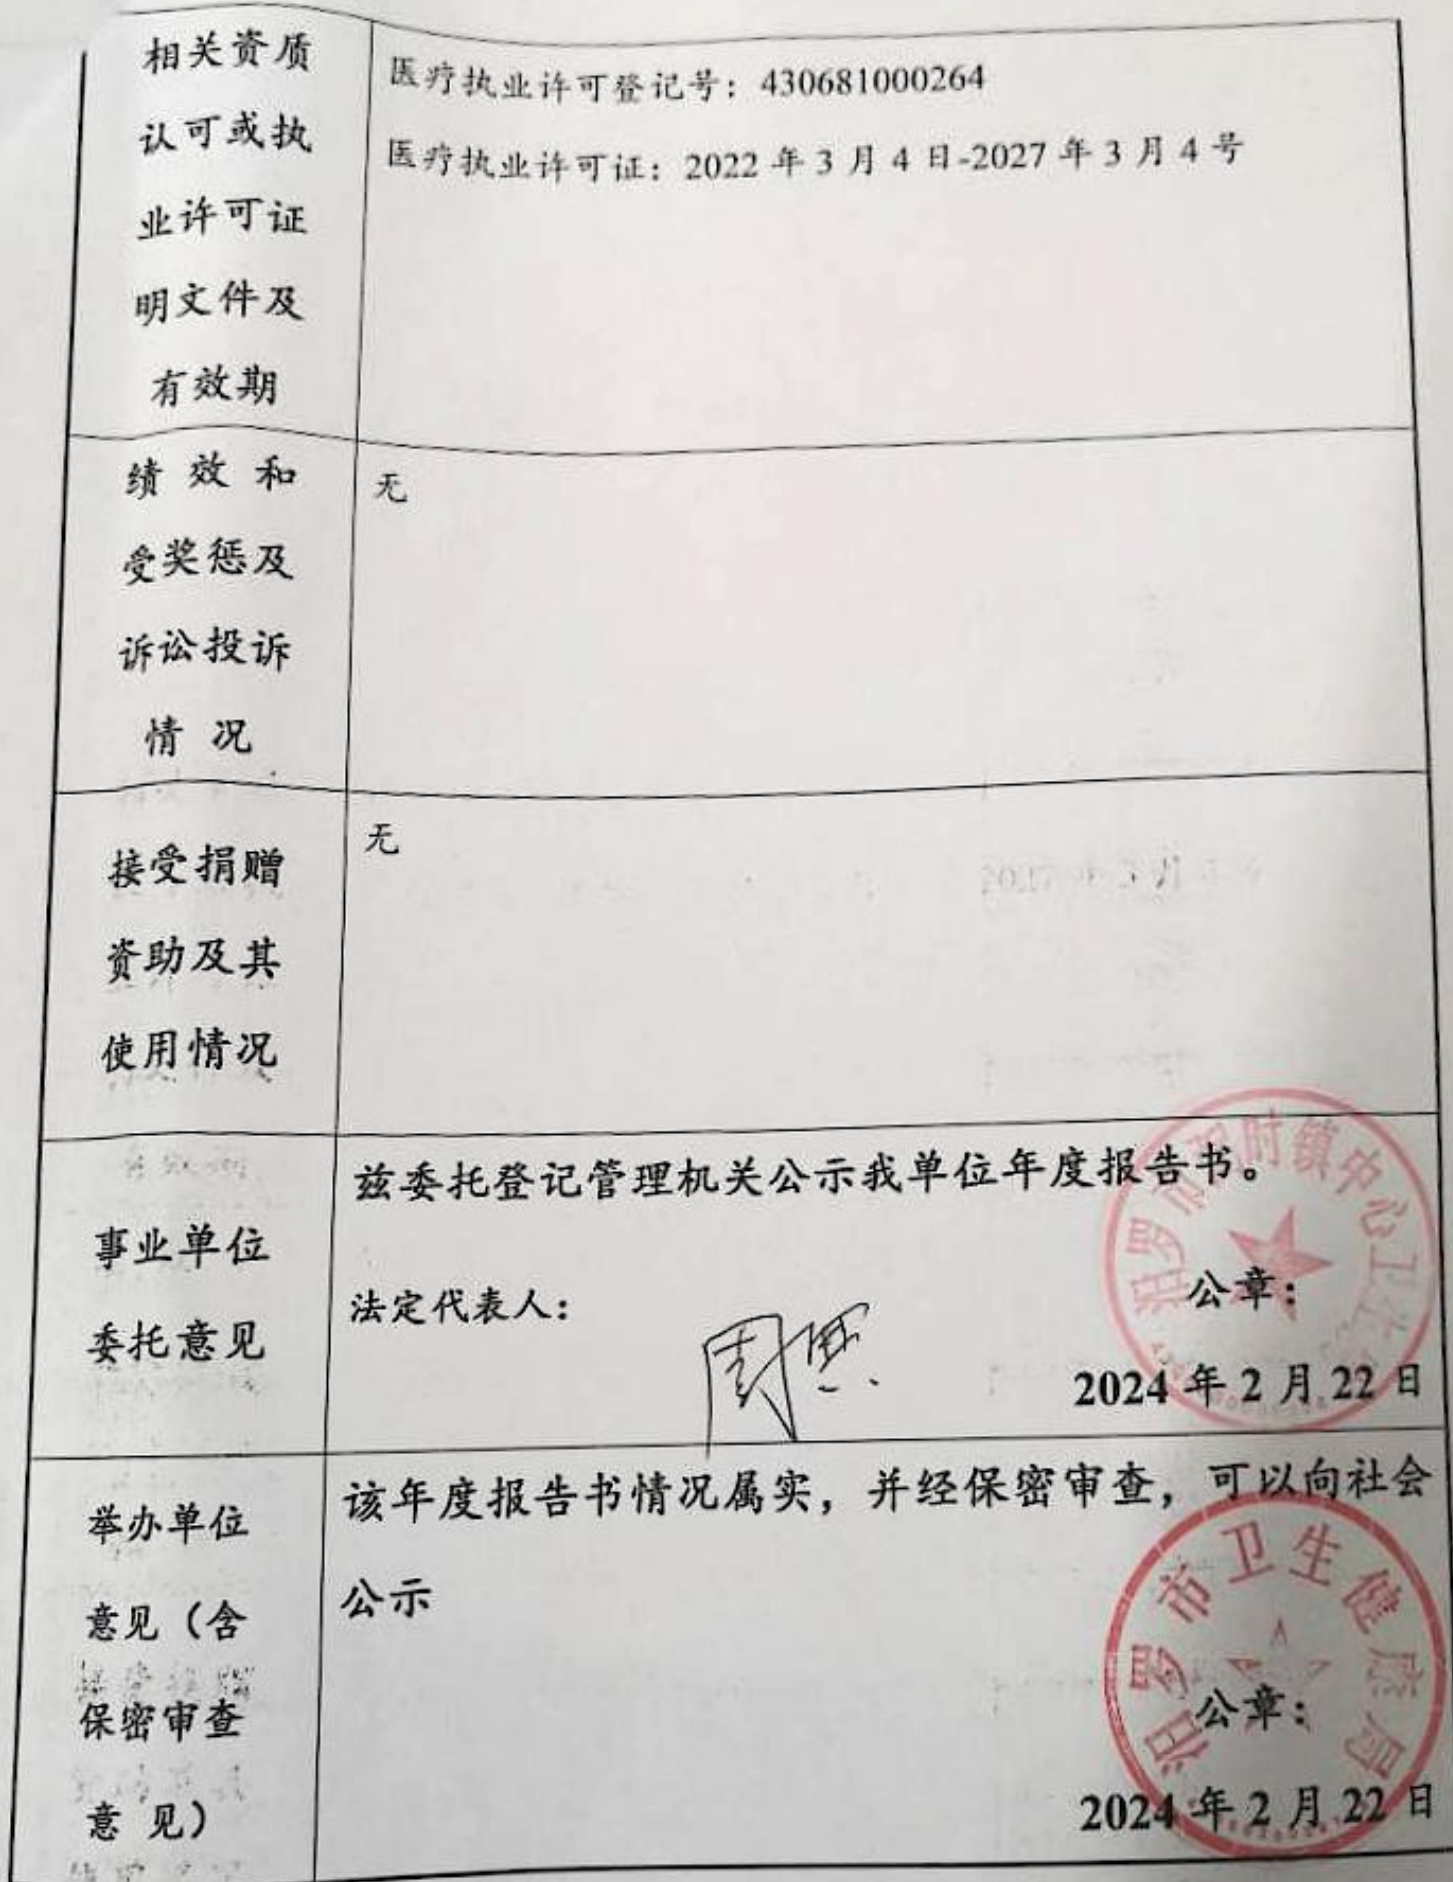 相关资质
认可或执
业许可证
明文件及
有效期
医疗执业许可登记号：430681000264
医疗执业许可证：2022 年 3 月 4 日-2027 年 3 月 4 号
绩 效 和
受奖惩及
诉讼投诉
情 况
无
接受捐赠
资助及其
使用情况
无
事业单位
委托意见
兹委托登记管理机关公示我单位年度报告书。
法定代表人：
公章：
2024 年 2 月 22 日
举办单位
意见（含
保密审查
意 见）
该年度报告书情况属实，并经保密审查，可以向社会
公示
汨罗市卫生健康局
公章：
2024 年 2 月 22 日